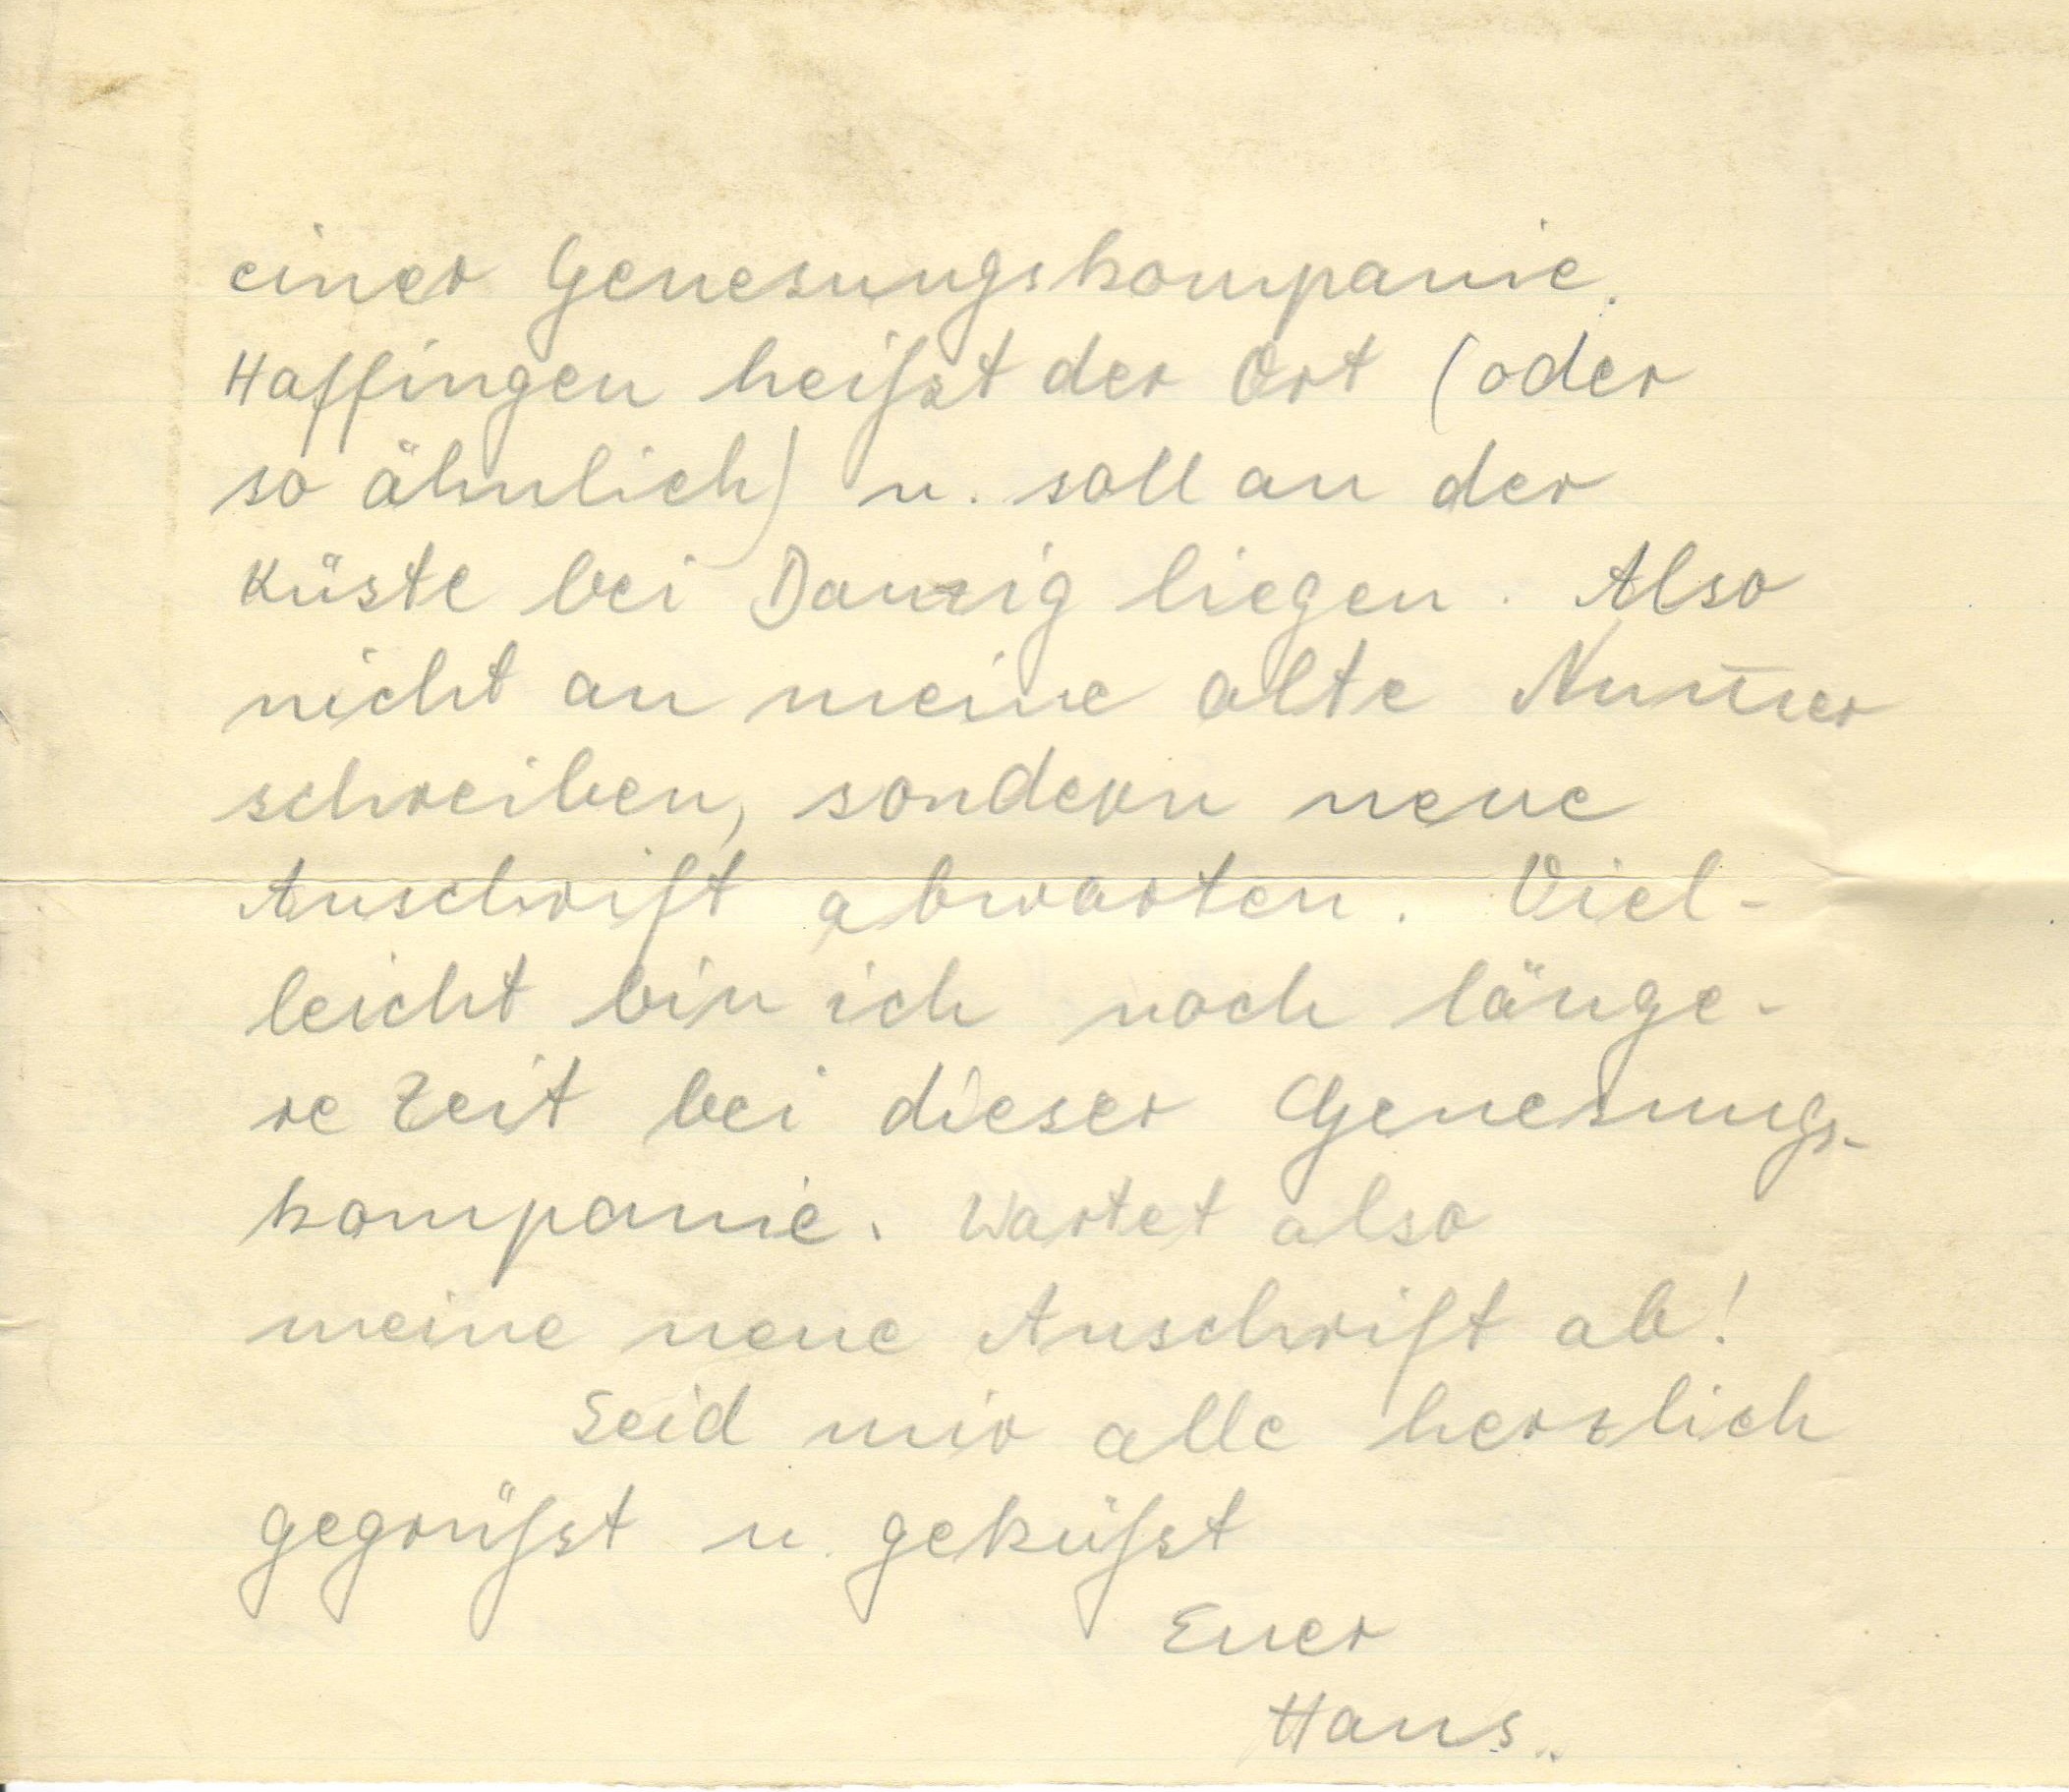 einer Genesungskompanie.
Haffingen heißst der Ort (oder
so ähnlich) u. soll an der
Küste bei Danzig liegen. Also
nicht an meine alte Num̄er
schreiben, sondern neue
Anschrift abwarten. Viel-
leicht bin ich noch länge-
re Zeit bei dieser Genesungs-
kompanie. Wartet also
meine neue Anschrift ab!
Seid mir alle herzlich
gegrüſst u. geküſst
Euer
Hans..